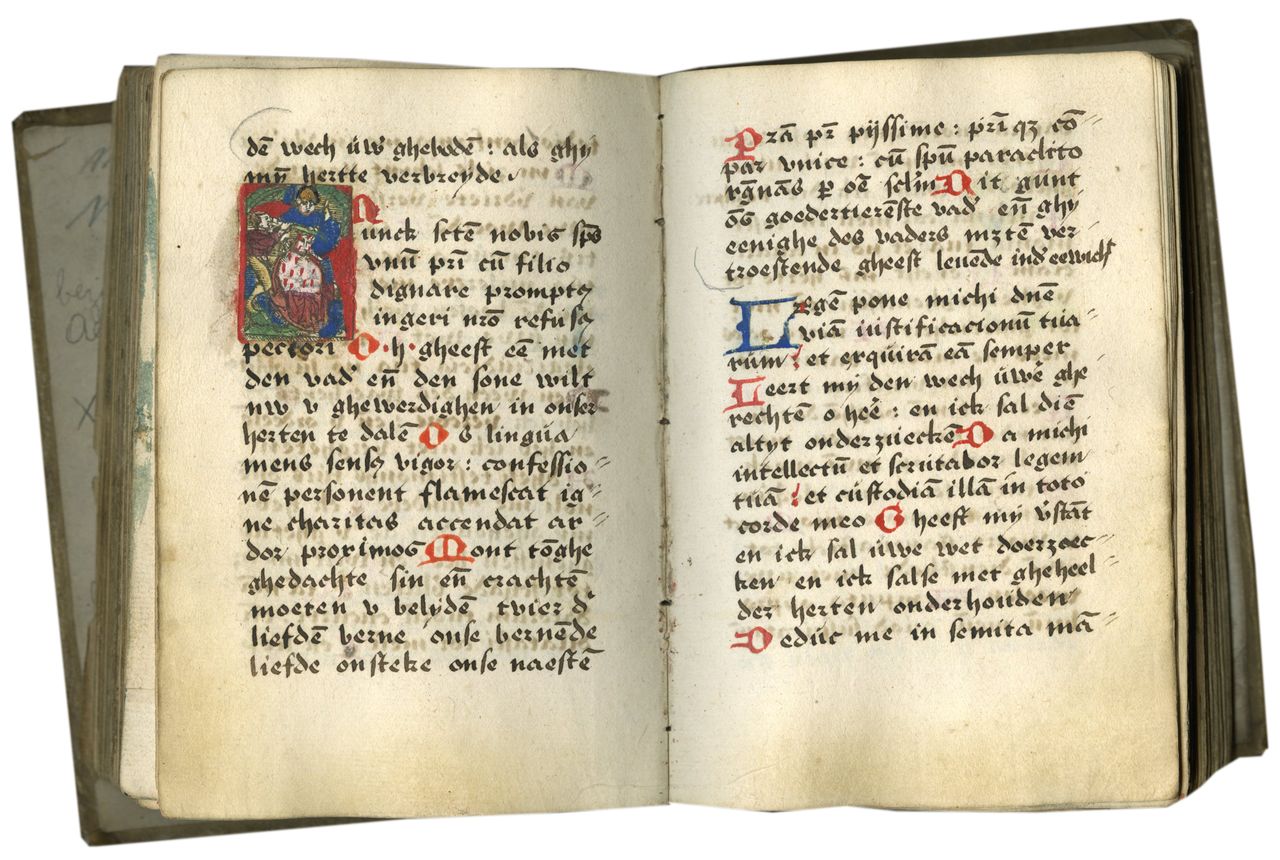 dē wech uw̄ ghebodē : als ghy
myn̄ hertte verbreyde .
Nunck sctē nobis sp̄s
vnū pr̄i cū filio
dignare promptꝯ
ingeri nr̄o refusꝯ
pectori O · h · gheest eē met
den vad' en̄ den sone wilt
nw v ghewerdighen in onser
herten te dalē Os lingua
mens sensꝯ vigor : confessio
nē personent flamescat ig
ne charitas accendat ar
dor proximos Mont tōghe
ghedachte sin en̄ crachtē
moeten v belydē tvier d'
liefdē berne onse bernēde
liefde onsteke onse naestē
Prā pr̄ pijssime : pr̄i qꝫ cō
par vnice : cū spū paraclito
rḡnās p oē sclm̄ Dit gunt
ōs goedertierēste vad' en̄ ghy
eenighe des vaders mꝫtē ver
troestende gheest leuēde ind' eewich'
Legē pone michi dn̄e
viam iustificacionū tua
rum : et erquirā eā semper
Leert my den wech uwe' ghe
rechtē o hee' : en ick sal diē
altyt onderzueckē Da michi
intellectū et scrutabor legem
tuā : et custodiā illā in toto
corde meo Gheeft my vstāt
en ick sal uwe wet doerzoec
ken en ick salse met gheheel
der herten onderhouden
Deduc me in semita mā